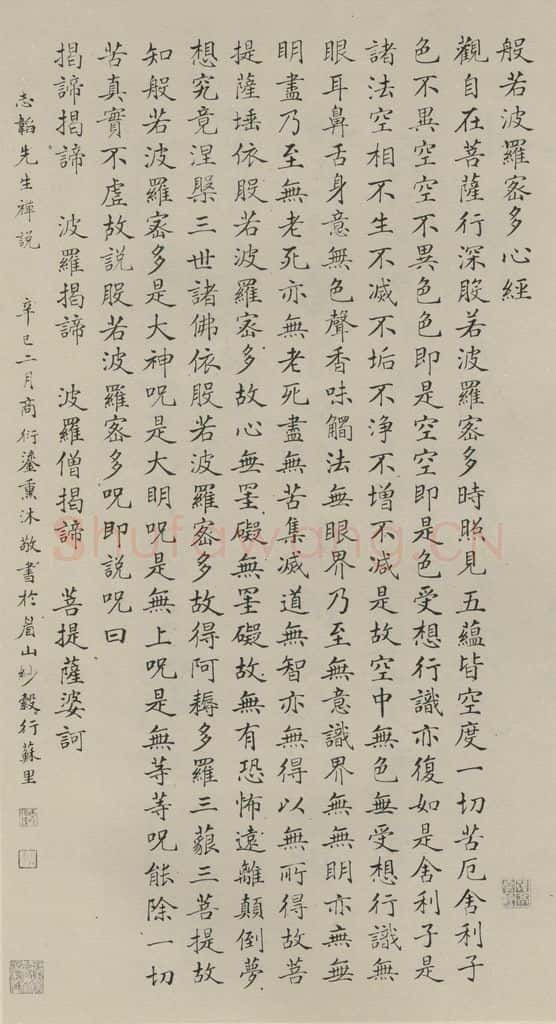 般若波羅密多心經
觀自在菩薩行深般若波羅密多時照見五蘊皆空度一切苦厄舍利子
色不異空空不異色色即是空空即是色受想行識亦復如是舍利子是
諸法空相不生不滅不垢不淨不增不減是故空中無色無受想行識無
眼耳鼻舌身意無色聲香味觸法無眼界乃至無意識界無無明亦無無
明盡乃至無老死亦無老死盡無苦集滅道無智亦無得以無所得故菩
提薩埵依般若波羅密多故心無罣礙無罣礙故無有恐怖遠離顛倒夢
想究竟涅槃三世諸佛依般若波羅密多故得阿耨多羅三藐三菩提故
知般若波羅密多是大神呪是大明呪是無上呪是無等等呪能除一切
苦真實不虛故說般若波羅密多呪即說呪曰
揭諦揭諦 波羅揭諦 波羅僧揭諦 菩提薩婆訶
志韜先生禪説 辛巳二月商衍鎏熏沐敬書於眉山紗縠行蘇里
Shufawang.CN